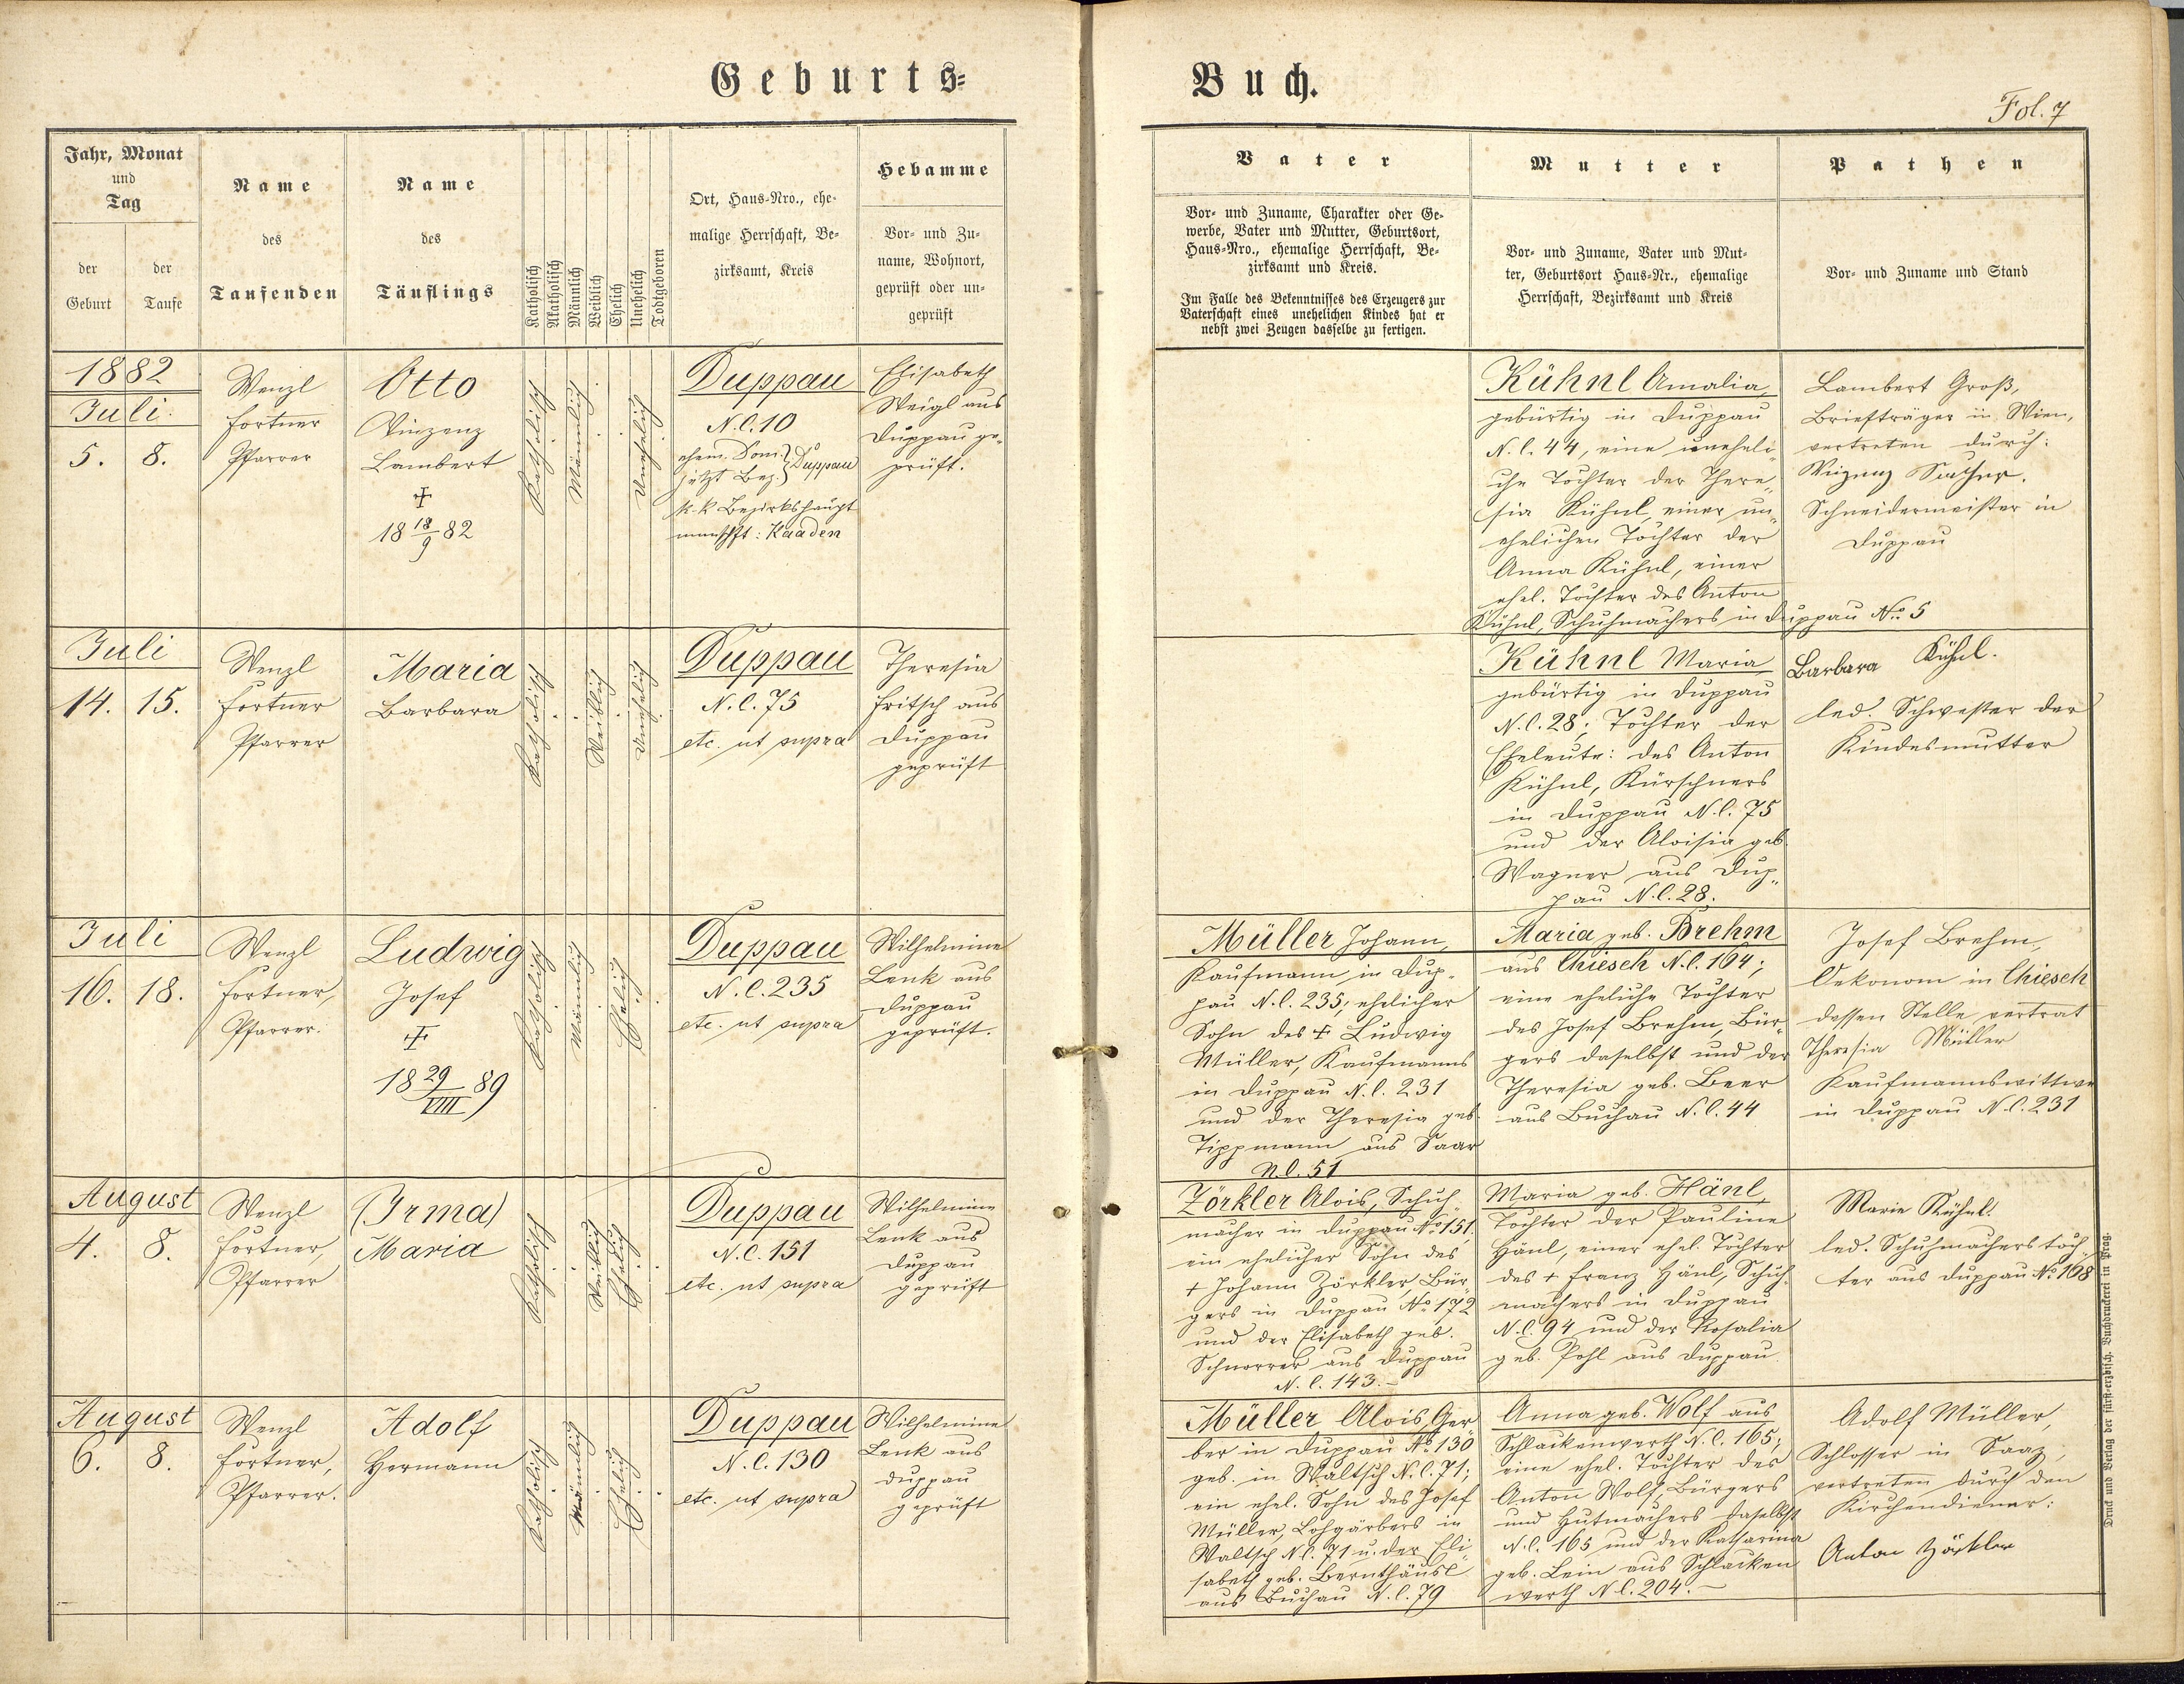 Geburts=
Buch.
Fol. 7
Jahr, Monat
und
Tag
der
Geburt
der
Taufe
Name
des
Taufenden
Name
des
Täuflings
Katholisch
Akatholisch
Männlich
Weiblich
Ehelich
Unehelich
Todtgeboren
Ort, Haus-Nro., ehe-
malige Herrschaft, Be-
zirksamt, Kreis
Hebamme
Vor- und Zu-
name, Wohnort,
geprüft oder un-
geprüft
Vater
Vor- und Zuname, Charakter oder Ge-
werbe, Vater und Mutter, Geburtsort,
Haus-Nro., ehemalige Herrschaft, Be-
zirksamt und Kreis.
Im Falle des Bekenntnisses des Erzeugers zur
Vaterschaft eines unehelichen Kindes hat er
nebst zwei Zeugen dasselbe zu fertigen.
Mutter
Vor- und Zuname, Vater und Mut-
ter, Geburtsort Haus-Nr., ehemalige
Herrschaft, Bezirksamt und Kreis
Pathen
Vor- und Zuname und Stand
1882
Juli.
5. 8.
Wenzl
Fortner
Pfarrer
Otto
Vinzenz
Lambert
†
18 18/9 82
Katholisch
Männlich
Unehelich
Duppau
N.C. 10
ehem. Dom.
jetzt Bez. } Duppau
k.k Bezirkshaupt
mannschft: Kaaden
Elisabeth
Weigl aus
Duppau ge-
prüft.
Kühnl Amalia,
gebürtig in Duppau
N.C. 44, eine uneheli-
che Tochter der There-
sia Kühnl, einer un-
ehelichen Tochter der
Anna Kühnl, einer
ehel. Tochter des Anton
Kühnl, Schuhmachers in Duppau No 5
Lambert Groß,
Briefträger in Wien,
vertreten durch:
Schneidermeister in
Duppau
Juli
14. 15.
Wenzl
Fortner
Pfarrer
Maria
Barbara
Katholisch
Weiblich
Unehelich
Duppau
N.C. 75
etc. ut supra
Theresia
Fritsch aus
Duppau
geprüft
Kühnl Maria
gebürtig in Duppau
N.C. 28; Tochter der
Eheleute: des Anton
Kühnl, Kürschners
in Duppau N.C. 75
und der Aloisia geb.
Wagner aus Dup-
pau N.C. 28.
Barbara Kühnl.
led. Schwester der
Kindesmutter
Juli
16. 18.
Wenzl
Fortner,
Pfarrer.
Ludwig
Josef
†
18 29/VIII 89
Katholisch
Männlich
Ehelich
Duppau
N.C. 235
etc. ut supra
Wilhelmine
Lenk aus
Duppau
geprüft.
Müller Johann,
Kaufmann in Dup-
pau N.C. 235, ehelicher
Sohn des † Ludwig
Müller, Kaufmanns
in Duppau N.C. 231
und der Theresia geb.
Tippmann aus Saar
N.C. 51
Maria geb. Brehm
aus Chiesch N.C. 164;
eine eheliche Tochter
des Josef Brehm, Bür-
gers daselbst und der
Theresia geb. Beer
aus Buchau N.C. 44
Josef Brehm,
Oekonom in Chiesch
dessen Stelle vertrat
Theresia Müller
Kaufmannswittwe
in Duppau N.C. 231
August
4. 8.
Wenzl
Fortner,
Pfarrer
(Irma)
Maria
Katholisch
Weiblich
Ehelich
Duppau
N.C. 151
etc. ut supra
Wilhelmine
Lenk aus
Duppau
geprüft
Zörkler Alois, Schuh-
macher in Duppau No 151.
ein ehelicher Sohn des
+ Johann Zörkler, Bür-
gers in Duppau No 172
und der Elisabeth geb.
Schnorrer aus Duppau
N.C. 143.-
Maria geb. Hänl,
Tochter der Pauline
Hänl, einer ehel. Tochter
des + Franz Hänl, Schuh-
machers in Duppau
N.C. 94 und der Rosalia
geb. Pohl aus Duppau
Marie Kühnl.
led. Schuhmacherstoch-
ter aus Duppau No 168
August
6. 8.
Wenzl
Fortner,
Pfarrer.
Adolf
Hermann
Katholisch
Männlich
Ehelich
Duppau
N.C. 130
etc. ut supra
Wilhelmine
Lenk aus
Duppau
geprüft
Müller Alois, Ger
ber in Duppau No 130
geb. in Waltsch N.C. 71;
ein ehel. Sohn des Josef
Müller, Lohgärbers in
Waltsch N.C. 71 u. der Eli
sabeth geb. Bernthäusl
aus Buchau N.C. 79
Anna geb. Wolf aus
Schlackenwerth N.C. 165;
eine ehel. Tochter des
Anton Wolf, Bürgers
und Hutmachers daselbst
N.C. 165 und der Katharina
geb. Lein aus Schlacken
werth N.C. 204.-
Adolf Müller,
Schlosser in Saaz,
vertreten durch den
Kirchendiener:
Anton Zörkler
Druck und Verlag der fürst-erzbisch. Buchdruckerei in Prag.